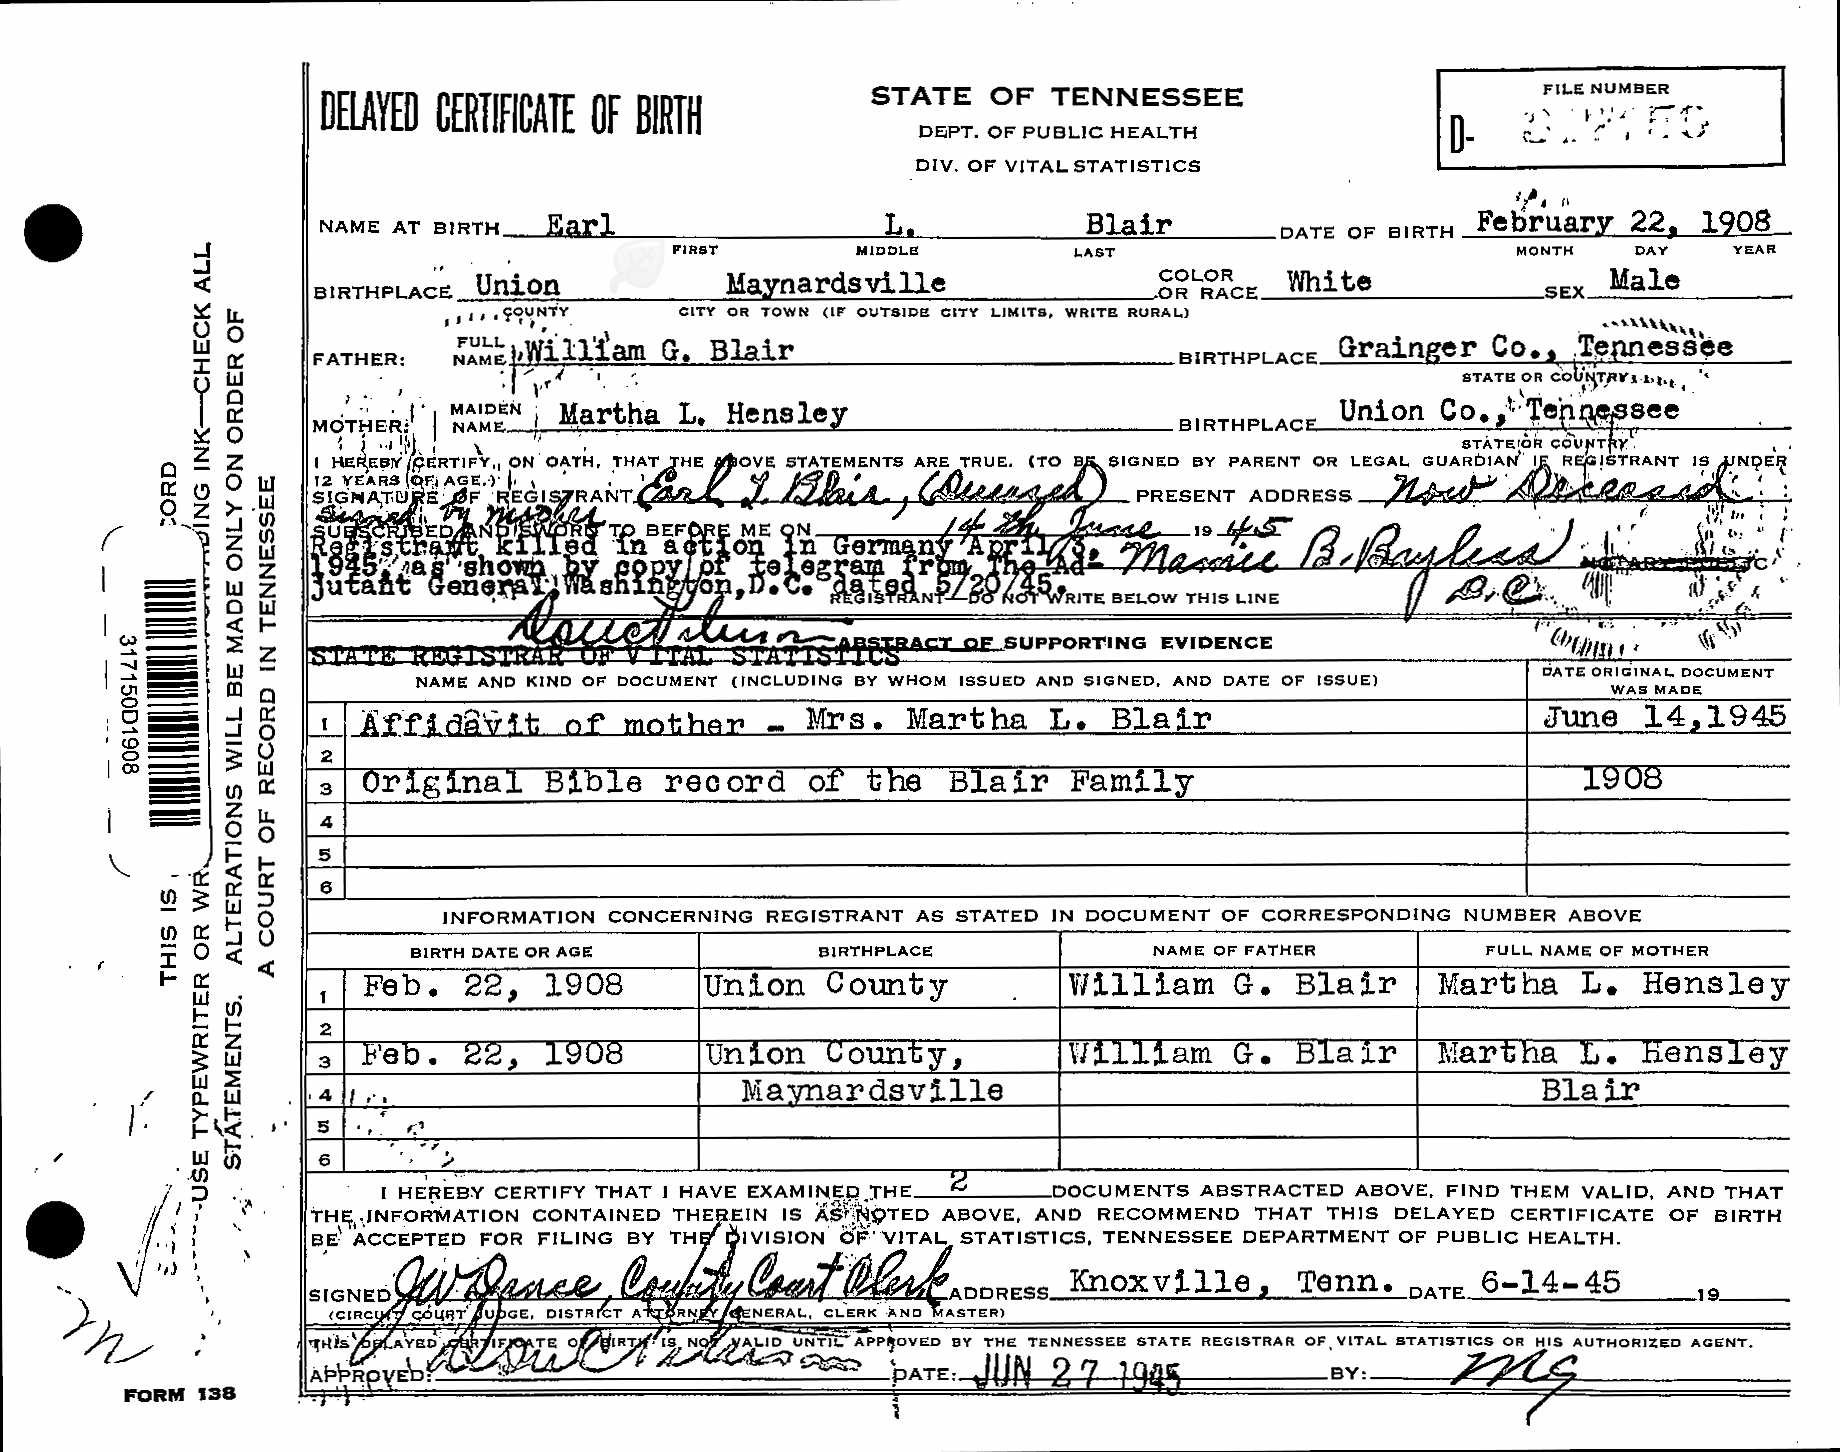 DELAYED CERTIFICATE OF BIRTH
STATE OF TENNESSEE
DEPT. OF PUBLIC HEALTH
DIV. OF VITAL STATISTICS
FILE NUMBER
D-
NAME AT BIRTH Earl L. Blair DATE OF BIRTH February 22, 1908
FIRST MIDDLE LAST MONTH DAY YEAR
BIRTHPLACE Union Maynardsville COLOR OR RACE White SEX Male
COUNTY CITY OR TOWN (IF OUTSIDE CITY LIMITS, WRITE RURAL)
FATHER: FULL NAME William G. Blair BIRTHPLACE Grainger Co., Tennessee
STATE OR COUNTRY
MOTHER: MAIDEN NAME Martha L. Hensley BIRTHPLACE Union Co., Tennessee
STATE OR COUNTRY
I HEREBY CERTIFY, ON OATH, THAT THE ABOVE STATEMENTS ARE TRUE. (TO BE SIGNED BY PARENT OR LEGAL GUARDIAN IF REGISTRANT IS UNDER
12 YEARS OF AGE.)
SIGNATURE OF REGISTRANT Earl L. Blair, (Deceased) PRESENT ADDRESS Now Deceased
Signed by mother
SUBSCRIBED AND SWORN TO BEFORE ME ON 14th June 1945
Registrant killed in action in Germany April 3,
1945, as shown by copy of telegram from The Ad-
jutant General, Washington, D.C. dated 5/20/45.
B. Bayless NOTARY PUBLIC
D.C.
REGISTRANT—DO NOT WRITE BELOW THIS LINE
STATE REGISTRAR OF VITAL STATISTICS
ABSTRACT OF SUPPORTING EVIDENCE
NAME AND KIND OF DOCUMENT (INCLUDING BY WHOM ISSUED AND SIGNED, AND DATE OF ISSUE)
DATE ORIGINAL DOCUMENT
WAS MADE
1 Affidavit of mother - Mrs. Martha L. Blair June 14,1945
2
3 Original Bible record of the Blair Family 1908
4
5
6
INFORMATION CONCERNING REGISTRANT AS STATED IN DOCUMENT OF CORRESPONDING NUMBER ABOVE
BIRTH DATE OR AGE BIRTHPLACE NAME OF FATHER FULL NAME OF MOTHER
1 Feb. 22, 1908 Union County William G. Blair Martha L. Hensley
2
3 Feb. 22, 1908 Union County, William G. Blair Martha L. Hensley
4 Maynardsville Blair
5
6
I HEREBY CERTIFY THAT I HAVE EXAMINED THE 2 DOCUMENTS ABSTRACTED ABOVE, FIND THEM VALID, AND THAT
THE INFORMATION CONTAINED THEREIN IS AS NOTED ABOVE, AND RECOMMEND THAT THIS DELAYED CERTIFICATE OF BIRTH
BE ACCEPTED FOR FILING BY THE DIVISION OF VITAL STATISTICS, TENNESSEE DEPARTMENT OF PUBLIC HEALTH.
SIGNED County Court Clerk ADDRESS Knoxville, Tenn. DATE 6-14-45 19
(CIRCUIT COURT JUDGE, DISTRICT ATTORNEY GENERAL, CLERK AND MASTER)
THIS DELAYED CERTIFICATE OF BIRTH IS NOT VALID UNTIL APPROVED BY THE TENNESSEE STATE REGISTRAR OF VITAL STATISTICS OR HIS AUTHORIZED AGENT.
APPROVED: DATE: JUN 27 1945 BY: MG
FORM 138
THIS IS CORD
USE TYPEWRITER OR WR DING INK—CHECK ALL
STATEMENTS. ALTERATIONS WILL BE MADE ONLY ON ORDER OF
A COURT OF RECORD IN TENNESSEE
317150D1908